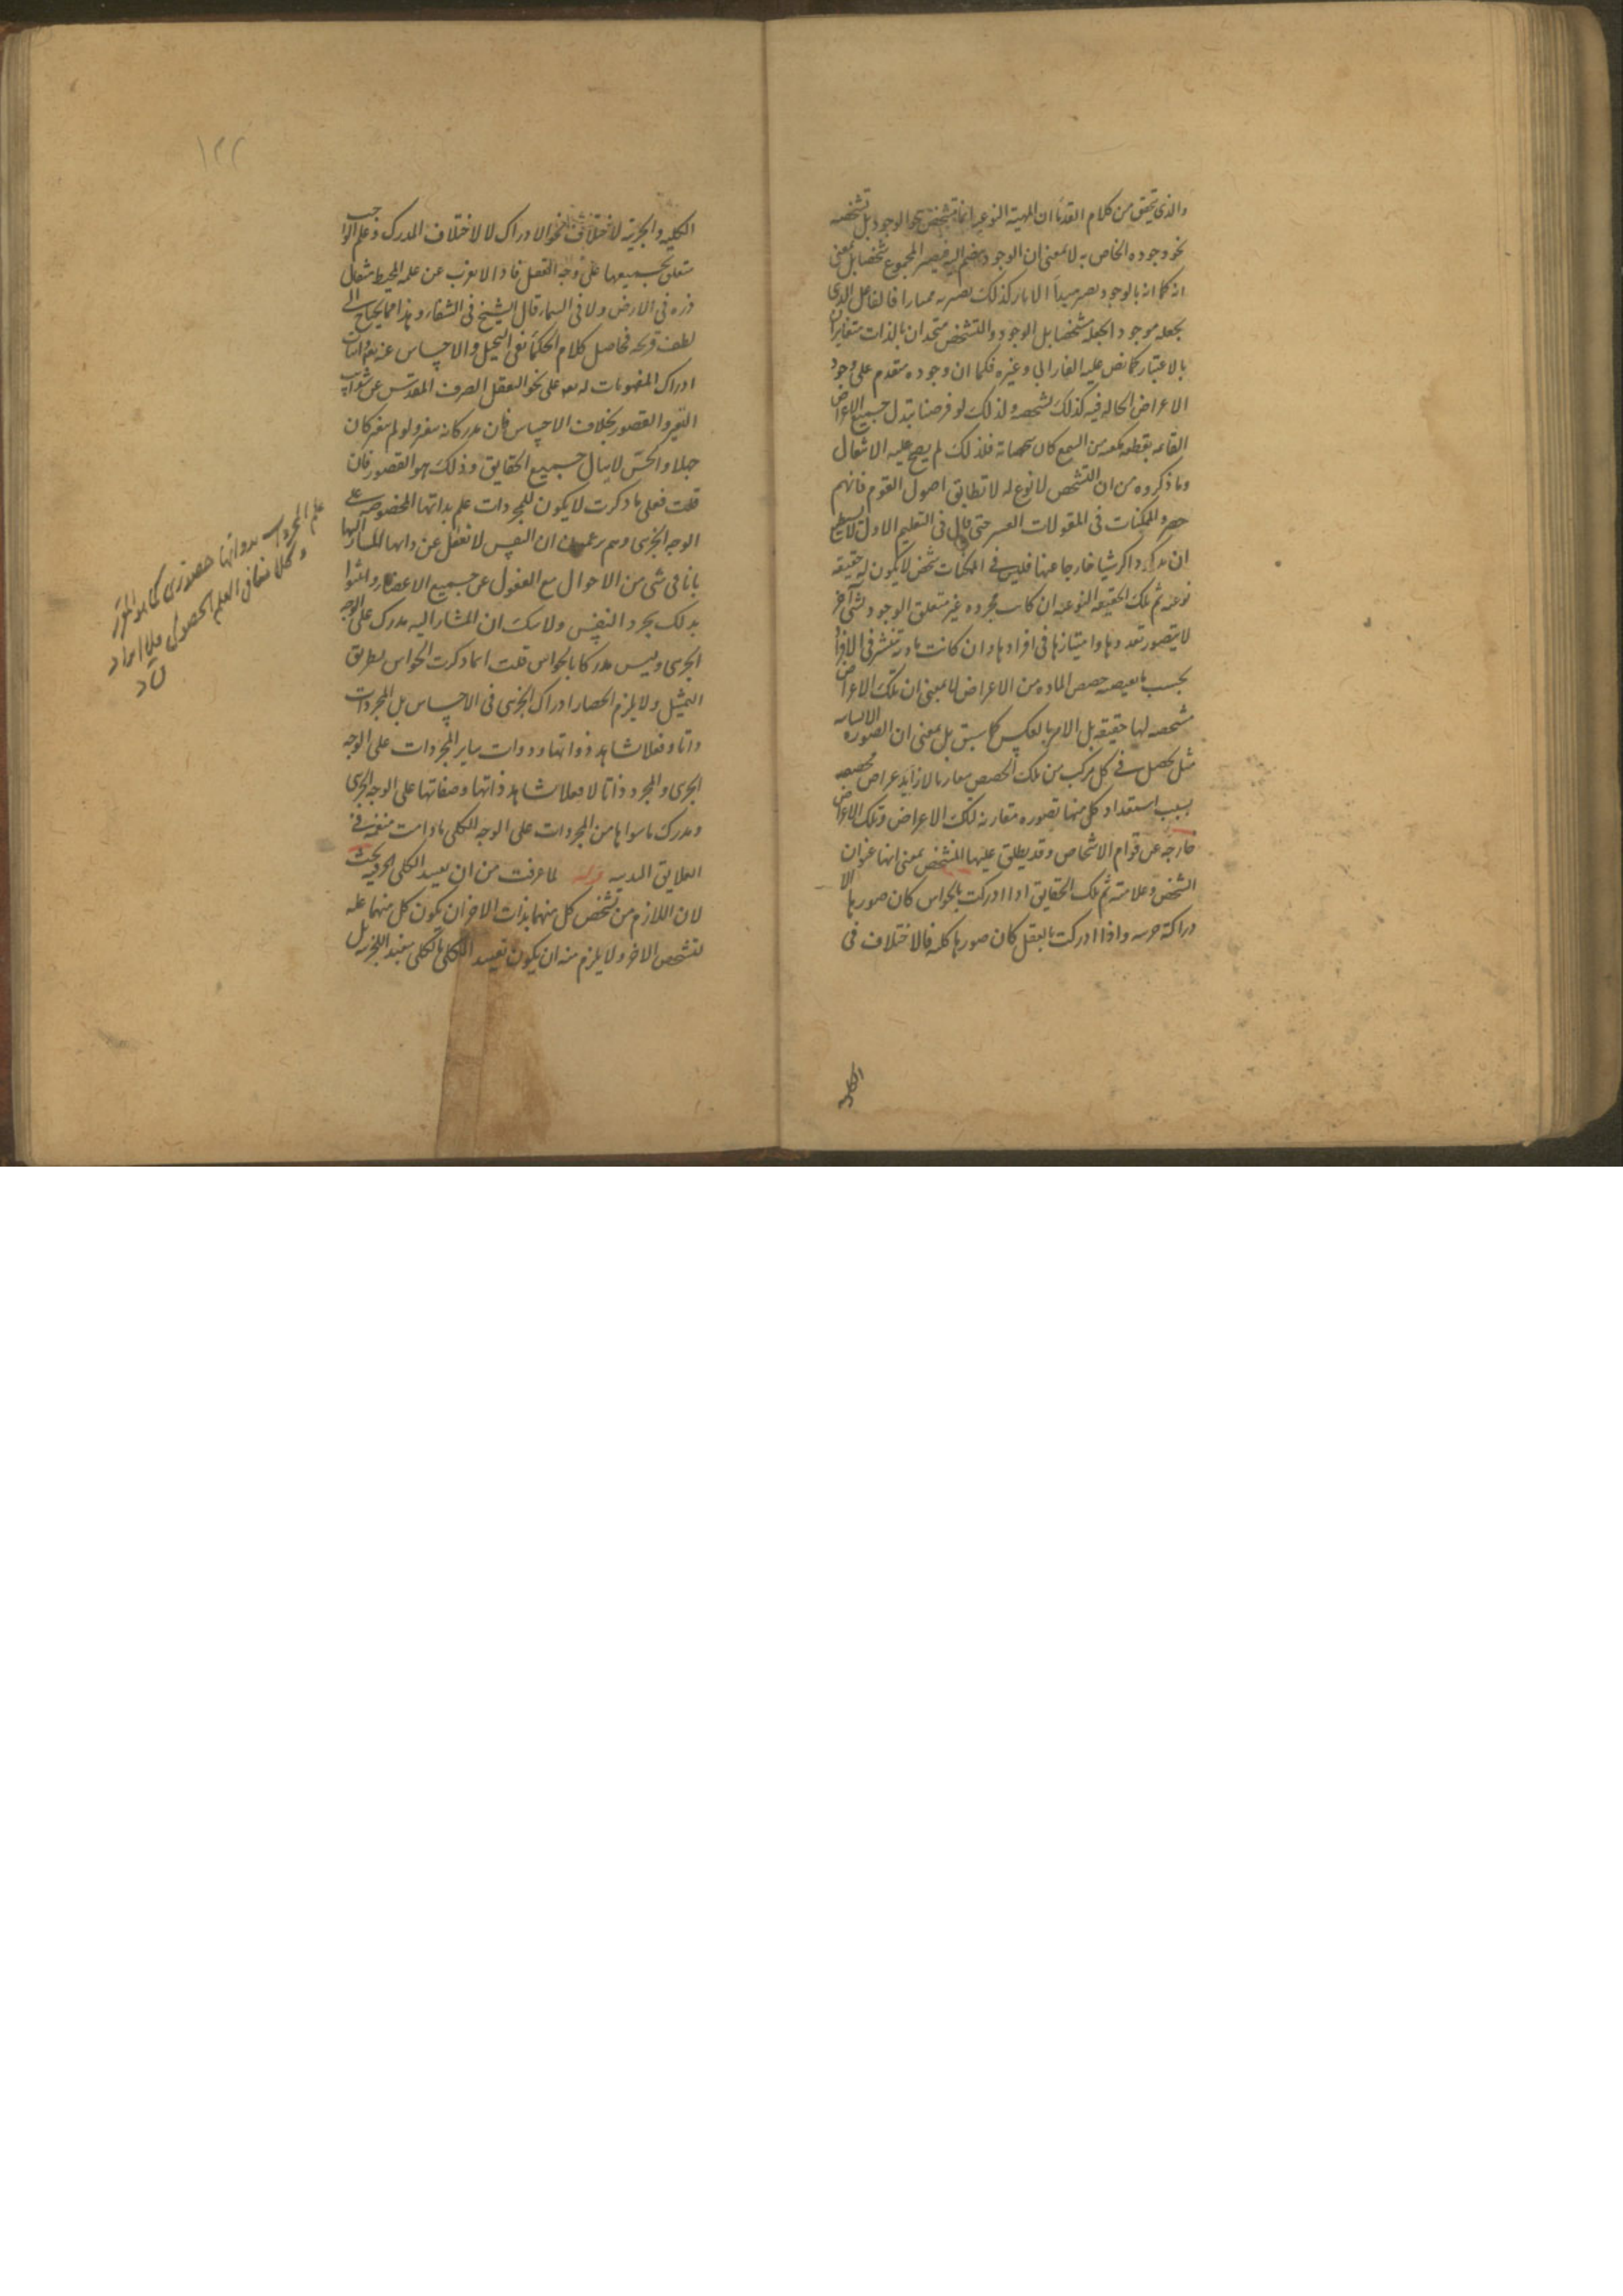 والذى تحقق من كلام القدماء ان المهية النوعية انما تتشخص بنحو الوجود بل تشخصه
نحو وجوده الخاص به لا بمعنى ان الوجود ينضم اليه فيصير المجموع شخصا بل بمعنى
انه كما انه بالوجود يصير مبدأ الاثار كذلك يصير به ممتازا فالفاعل الذى
يجعله موجودا يجعله متشخصا بل الوجود والتشخص متحدان بالذات متغايران
بالاعتبار كما نص عليه الفارابى وغيره فكما ان وجوده متقدم على وجود
الاعراض الحالة فيه كذلك تشخصه ولذلك لو فرضنا تبدل جميع الاعراض
القائمة بقطعة من الشمع كان فلذلك لم يصح عليه الانتقال
وما ذكروه من ان التشخص لا نوع له لا تطابق اصول القوم فانهم
حصروا الممكنات فى المقولات العشر حتى قال فى التعليم الاول لا نستطيع
ان ذاكر شيئا خارجا عنها فليس فى الممكنات شخص لا يكون له حقيقة
نوعية ثم تلك الحقيقة النوعية ان كانت مجردة غير متعلق الوجود بشئ آخر
لا يتصور تعددها وامتيازها فى افرادها وان كانت مادية تنتشر فى الافراد
بحسب حصص المادة من الاعراض لا بمعنى ان تلك الاعراض
مشخصة لها حقيقة بل الامر بالعكس كما سبق بل بمعنى ان الصورة الانسانية
مثلا يحصل فى كل مركب من تلك الحصص مقارنا لاعراض مخصوصة
بسبب استعداد كل منها لصورة مقارنة لتلك الاعراض وتلك الاعراض
خارجة عن قوام الاشخاص وقد يطلق عليها المشخص بمعنى انها عنوان
الشخص وعلامته ثم تلك الحقايق اذا ادركت بالحواس كان صورها الا
دراكية جزئية واذا ادركت بالعقل كان صورها كلية فالاختلاف فى
الكلية
١٢٢
الكلية والجزئية لاختلاف نحو الادراك لا لاختلاف المدرك وعلم الواجب
متعلق بجميعها على وجه التعقل فاذا لا يعزب عن علمه المحيط مثقال
ذرة فى الارض ولا فى السماء قال الشيخ فى الشفاء وهذا مما يحتاج الى
لطف قريحة فحاصل كلام الحكماء نفى التخيل والاحساس عنه تعالى واثبات
ادراك له تعالى على نحو التعقل الصرف المقدس عن شوايب
التغير والقصور بخلاف الاحساس فان مدركاته متغير ولو لم يتغير كان
جهلا والحس لا ينال جميع الحقايق وذلك هو القصور فان
قلت فعلى ما ذكرت لا يكون للمجردات علم بذاتها المخصوصة على
الوجه الجزئى وهم يزعمون ان النفس لا تغفل عن ذاتها المشار اليها
بانا فى شئ من الاحوال مع الغفول عن جميع الاعضاء واثبتوا
بذلك تجرد النفس ولا شك ان المشار اليه مدرك على الوجه
الجزئى وليس مدركا بالحواس قلت انما ذكرت الحواس بطريق
التمثيل ولا يلزم انحصار ادراك الجزئى فى الاحساس بل المجردات
ذاتا وفعلا تشاهد ذواتها وذوات ساير المجردات على الوجه
الجزئى والمجرد ذاتا لا فعلا تشاهد ذاتها وصفاتها على الوجه الجزئى
ومدرك ما سواها من المجردات على الوجه الكلى ما دامت منغمسة فى
العلايق البدنية قوله لما عرفت من ان تقييد الكلى
لان اللازم من تشخص كل منهما بذات الاخر ان يكون كل منهما علة
لتشخص الاخر ولا يلزم منه ان يكون تقييد الكلى بالكلى مفيدا للجزئية بل
علم المجردات بذواتها حضورى كما هو المقرر
وكلامنا فى العلم الحصولى فلا ايراد